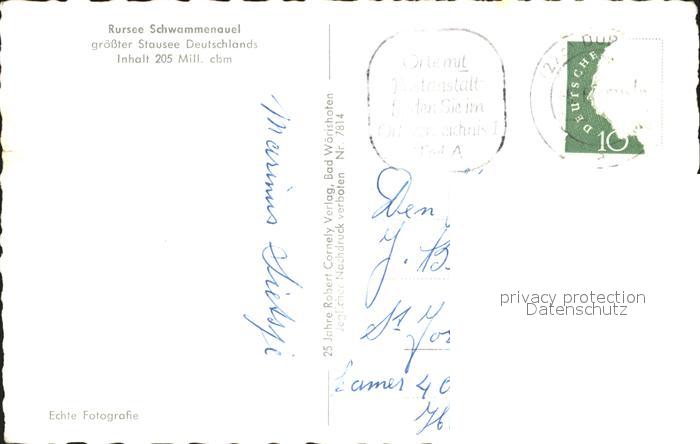 Rursee Schwammenauel
größter Stausee Deutschlands
Inhalt 205 Mill. cbm
Orte mit
Postanstalt
finden Sie im
Ortsverzeichnis I
Teil A
DEUTSCHE
10
25 Jahre Robert Cornely Verlag, Bad Wörishofen
Jeglicher Nachdruck verboten Nr. 7814
Marinus
Den
J. B
St Jo
Kamer 40
privacy protection
Datenschutz
Echte Fotografie